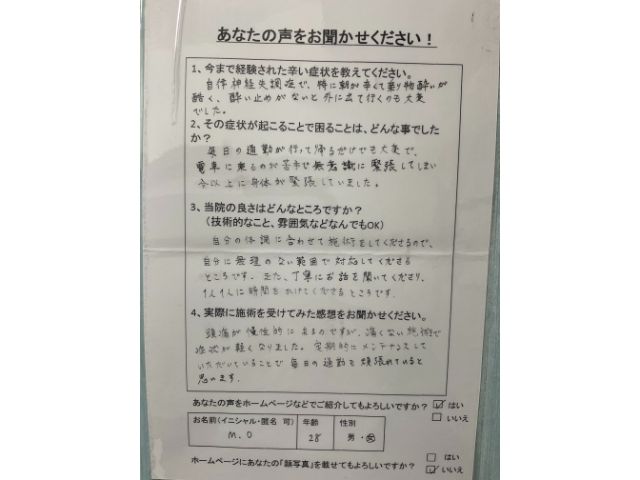 あなたの声をお聞かせください！
1、今まで経験された辛い症状を教えてください。
自律神経失調症で、特に朝が辛くて乗り物酔いが
酷く、酔い止めがないと外に出て行くのも大変
でした。
2、その症状が起こることで困ることは、どんな事でした
か？
毎日の通勤が行って帰るだけでも大変で、
電車に乗るのが苦手で無意識に緊張してしまい
今以上に身体が緊張していました。
3、当院の良さはどんなところですか？
（技術的なこと、雰囲気などなんでもOK）
自分の体調に合わせて施術をしてくださるので、
自分に無理のない範囲で対応してくださる
ところです。また、丁寧にお話を聞いてくださり、
1人1人に時間をかけてくださるところです。
4、実際に施術を受けてみた感想をお聞かせください。
頭痛が慢性的にあるのですが、痛くない施術で
症状が軽くなりました。定期的にメンテナンスして
いただいていることで毎日の通勤も頑張れていると
思います。
あなたの声をホームページなどでご紹介してもよろしいですか？ ☑ はい
□ いいえ
お名前（イニシャル・匿名 可） 年齢 性別
M.O 28 男・女
ホームページにあなたの「顔写真」を載せてもよろしいですか？ □ はい
☑ いいえ